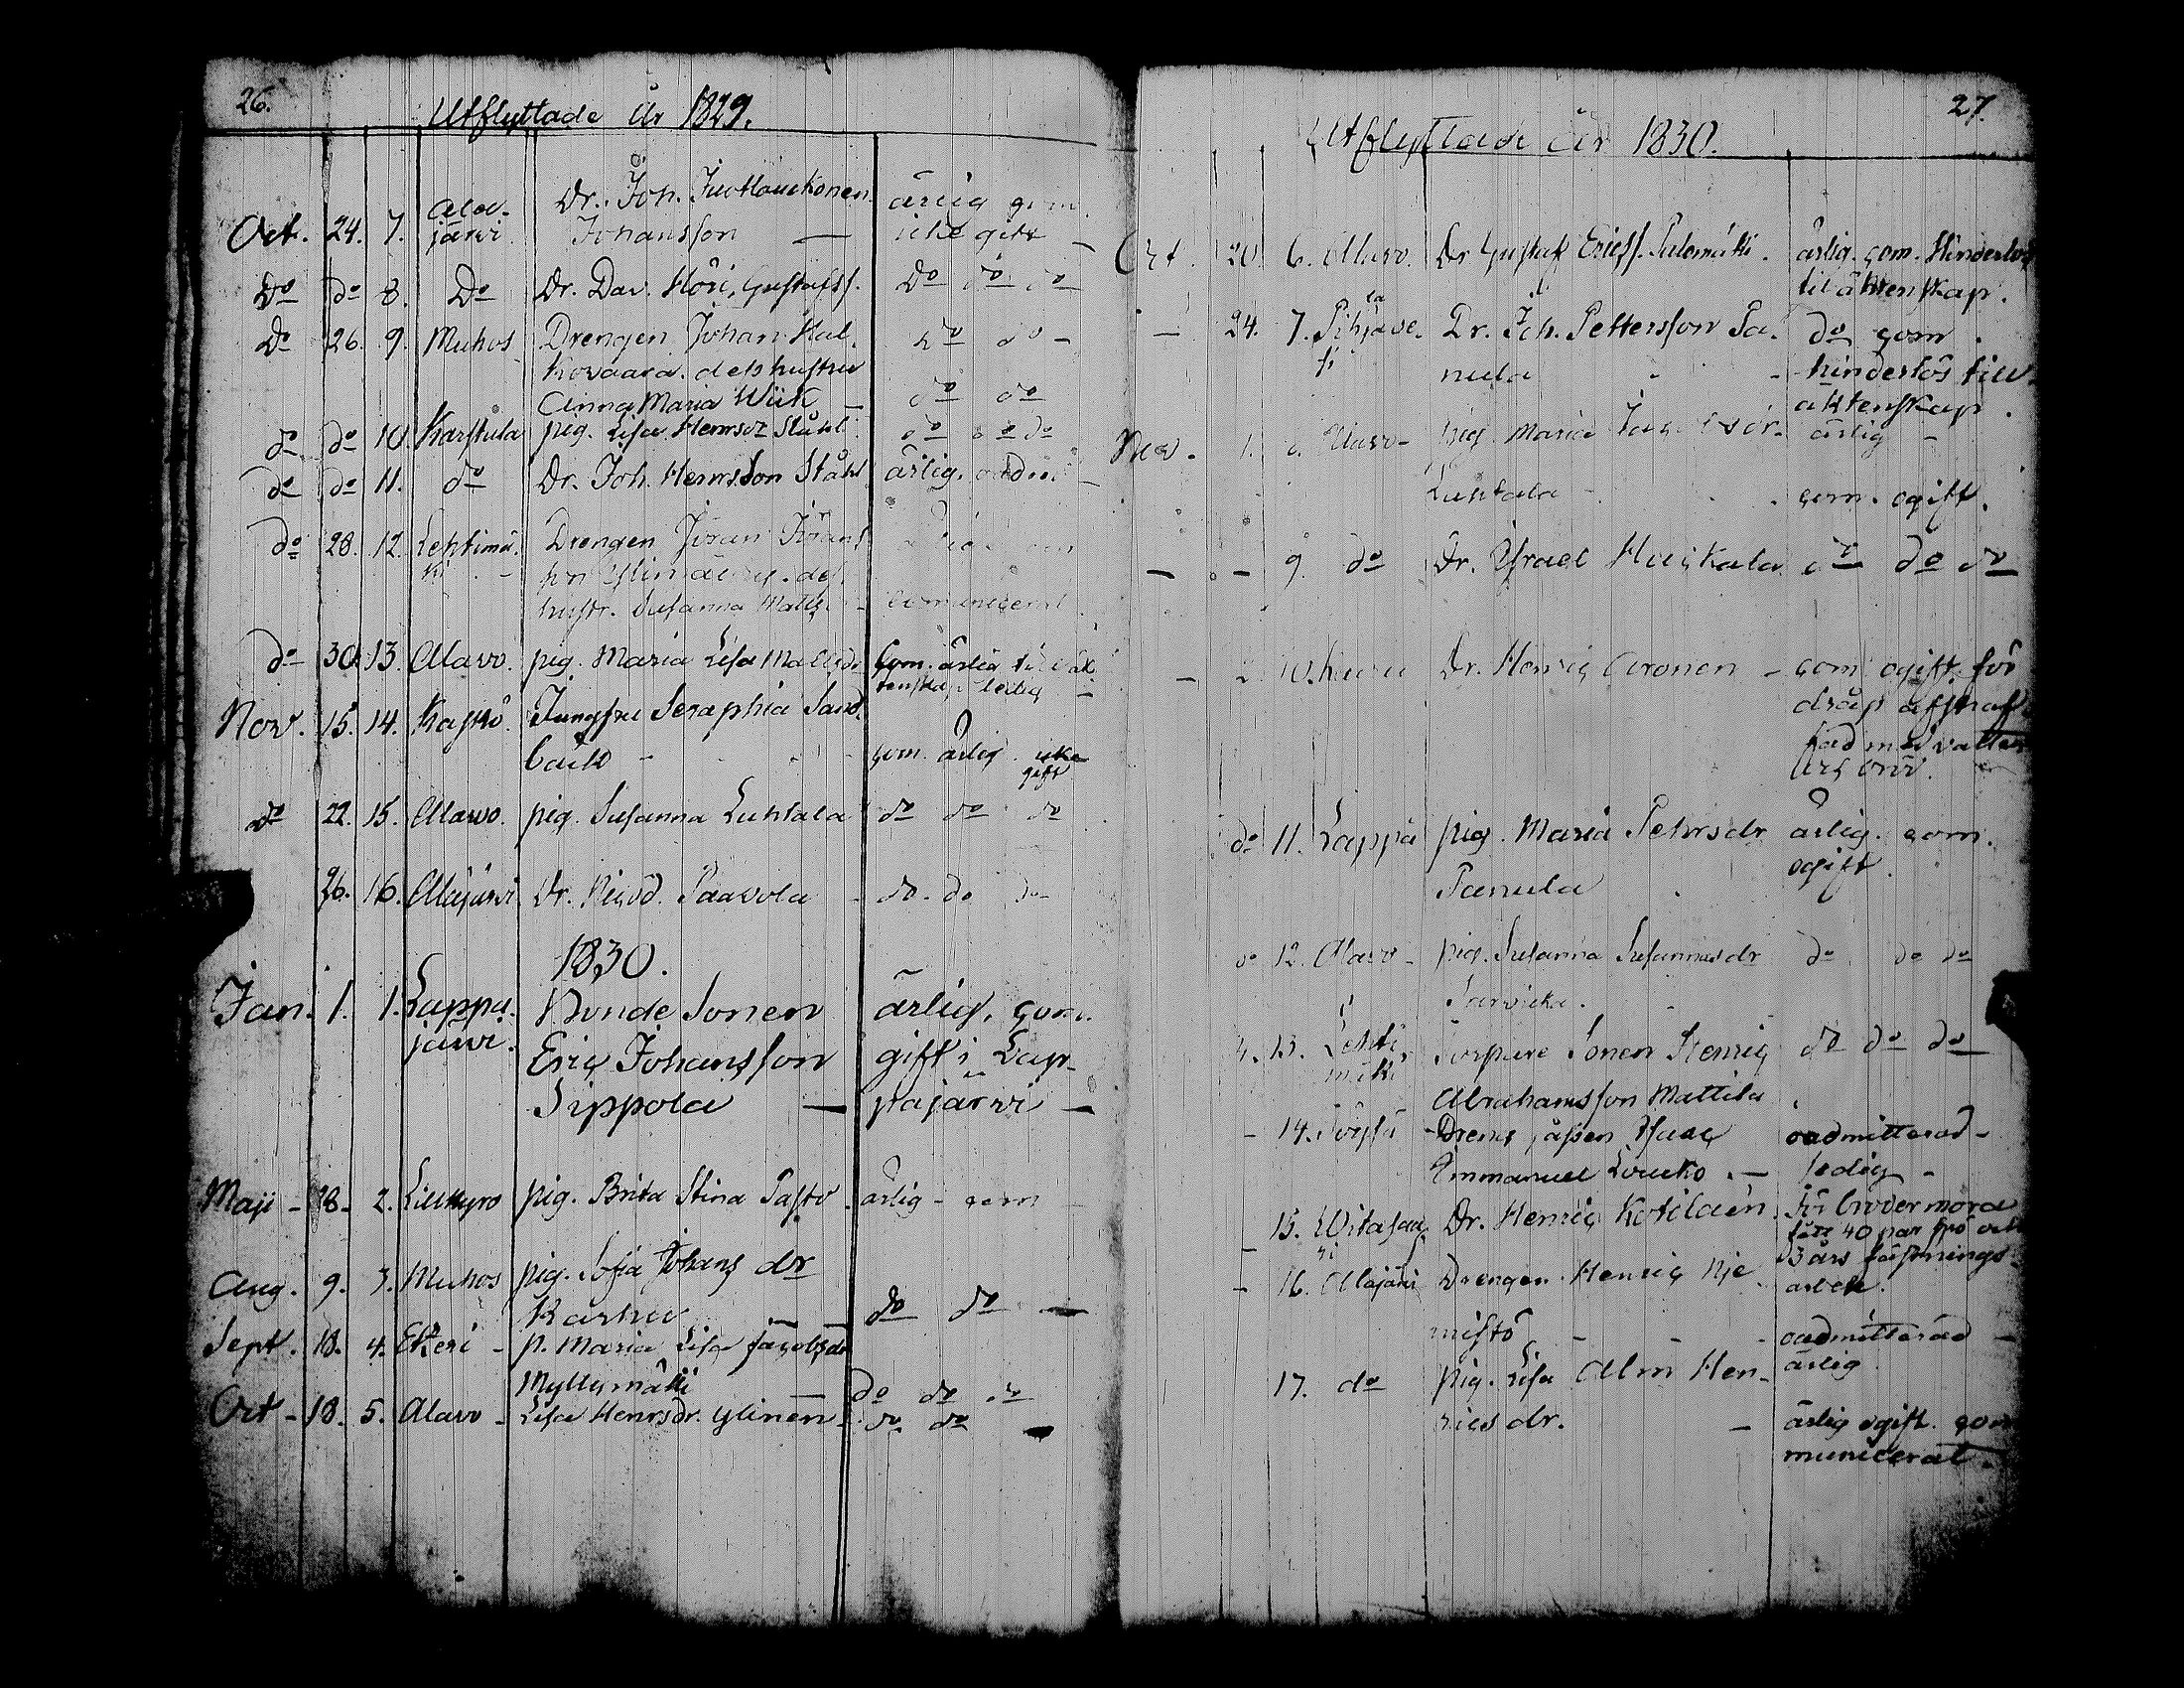 26.
Utflyttade År 1829.
Oct. 24. 7. Ala- Dr. Joh. Johansson ärlig com.
järvi icke gift -
Do do 8. Do Dr. Dav. Höri, Gustafss. Do do do
Do 26. 9. Muhos Drengen Johan Kal- do do -
kovaara. dess hustru
Anna Maria Wiik - do do
do do 10. Karstula pig. Lisa Henrsdr Ståhl do do do
do do 11. do Dr. Joh. Henrsson Ståhl ärlig.
do 28. 12. Lehtimä- Drengen Jöran Jörans-
ki - son
hustr. Susanna Matts - comunicerat
do 30. 13. Alavo. pig. Maria Lisa Mattsdr Com. ärlig till äk-
tenskap ledig -
Nov. 15. 14. Kaskö Jungfru Seraphia Sand-
bäck - com. ärlig. icke
gift
do 22. 15. Alawo. pig. Susanna Luhtala do do do
26. 16. Alajärvi Dr. Paavola - do. do do
1830.
Jan. 1. 1. Lappa- Bonde Sonen ärlig, com.
järvi. Eric Johansson gift i Lap-
Sippola - pajärvi -
Maji - 18. 2. Lillkyro pig. Brita Stina Pasto ärlig - com
Aug. 9. 3. Muhos pig. Sofia Johans dr
Karhu - do do -
Sept. 18. 4. Etseri - p. Maria Lisa Jacobsdr
Myllymäki - do do do
Oct - 18. 5. Alavo - Lisa Henrsdr. Ylinen - do do -
27.
Utflyttade år 1830.
Oct. 20. 6. Alavo. Dr Gustaf Ericss. Salomäki. ärlig. com. Hinderlös
til äktenskap.
- 24. 7. Pihjave- Dr. Joh. Pettersson Pa- do com
si nula - hinderlös till
äktenskap.
Nov. 1. Alavo - pig. Maria ärlig -
Luhtala - com. ogift.
- - 9. do Dr. Israel Haickala do do do
- 2. 10. Dr. Henric Aronen - com ogift för
dråp afstraf-
fad med vatten
och bröd.
do 11. Lappa pig. Maria Pehrsdr ärlig. com.
Panula ogift.
do 12. Alavo - pig. Susanna Susannasdr do do do
13. Lehti- Torpare Sonen Henric do do do
mäki Abrahamsson Mattila
- 14. Drengsgåssen Isaac oadmitterad -
Emmanuel Loucko. - ledig -
- 15. Witasaa- Dr. Henric Kotilaen. för
ri 40 par spö och
3 års fästnings
- 16. Alajärvi Drengen Henric Nje- arbete.
mistö - oadmitterad -
ärlig
17. do pig. Lisa Alm Hen-
rics dr. - ärlig ogift. com-
municerat.